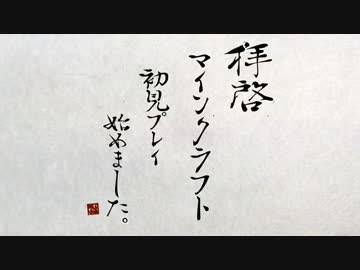 拝啓
マインクラフト
初見プレイ
始めました。